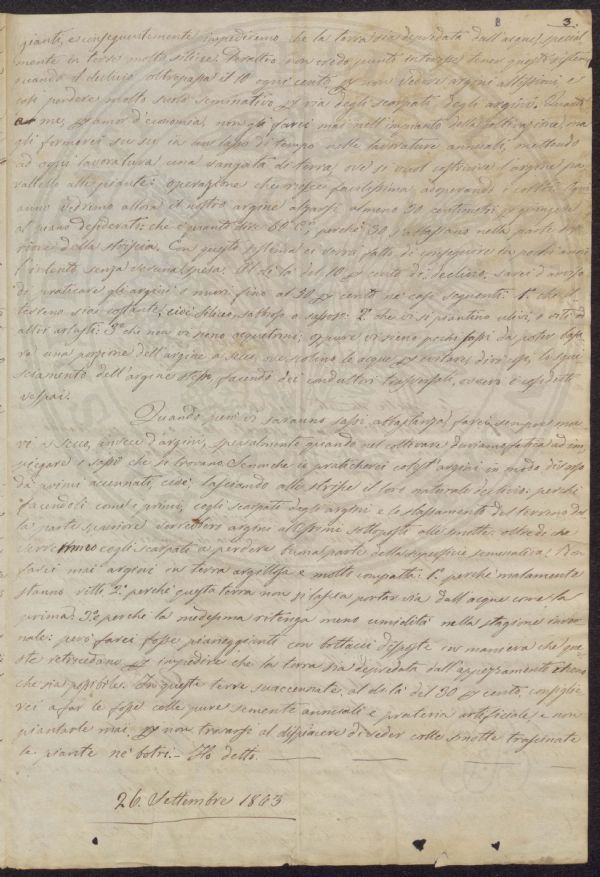 3
pianti, e conseguentemente impediremo che la terra sia depredata dall'acque, special
mente in terre molto silicee. Peraltro non credo punto interesse tener questo sistema
quando il declivio oltrepassa il 10 ogni cento, per non vedere argini altissimi, e
così perdere molto suolo seminativo per via degli scarpati degli argini. Quanto
a me, per amor d'economia, non gli farei mai nell'impianto della coltivazione, ma
gli formerei su su in un lasso di tempo nelle lavorature annuali, mettendo
ad ogni lavoratura una vangata di terra, ove si vuol costruire l'argine pa
rallelo alle piante: operazione che riesce facilissima adoperando i coltri. Ogni
anno vedremo allora il nostro argine alzarsi almeno 30 centimetri per giungere
al piano desiderato: che è quanto dire 60 C. perchè 30 s'abbassano nella parte in
riore della striscia. Con questo sistema ci verrà fatto di conseguire in pochi anni
l'intento senza veruna spesa. Al di là del 10 per cento di declivio, sarei d'avviso
di praticare gli argini o muri fino al 30 per cento ne' casi seguenti: 1.° che il
terreno sia costante, cioè siliceo, sabbioso o sassoso: 2.° che vi si piantino ulivi, o viti ad
alberi bassi: 3.° che non vi sieno acquitrini; oppure vi sieno pochi sassi da poter
una porzione dell'argine a secco, ne scolino le acque per evitare, dirò così, lo sgu
sciamento dell'argine stesso, facendo dei condottori trasversali, ovvero i cosiddetti
vespai.
Quando però vi saranno sassi abbastanza, farei sempre mu
ri a secco, invece d'argini, specialmente quando nel coltivare duriamo fatica ad im
piegare i sassi che si trovano. Sennonché io praticherei cotesti argini in modo diverso
da' primi accennati, cioè, lasciando alle strisce il loro naturale declivio: perchè
facendoli come i primi, cogli scarpati degli argini e lo sbassamento del terreno dal
la parte superiore verrebbero argini altissimi sottoposti alle smotte. oltredichè
verremmo cogli scarpati a perdere buona parte della superficie seminativa. Non
farei mai argini in terra argillosa e molto compatta: 1.° perchè malamente
stanno ritti 2.° perchè questa terra non si lascia portar via dall'acque come la
prima. 3.° perchè la medesima ritenga meno umidità nella stagione inver
nale: però farei fosse pianeggianti con bottacci disposte in maniera che que
ste retrocedano per impedire che la terra sia depredata dall'
che sia possibile. In queste terre suaccennate, al di là del 30 per cento, consiglie
rei a far le fosse colle pure semente annuali e prateria artificiale e non
piantarle mai per non trovarsi al dispiacere di veder colle smotte trascinate
le piante ne' botri.— Ho detto.
26. Settembre 1863